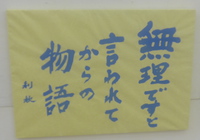 無理ですと
言われて
からの
物語